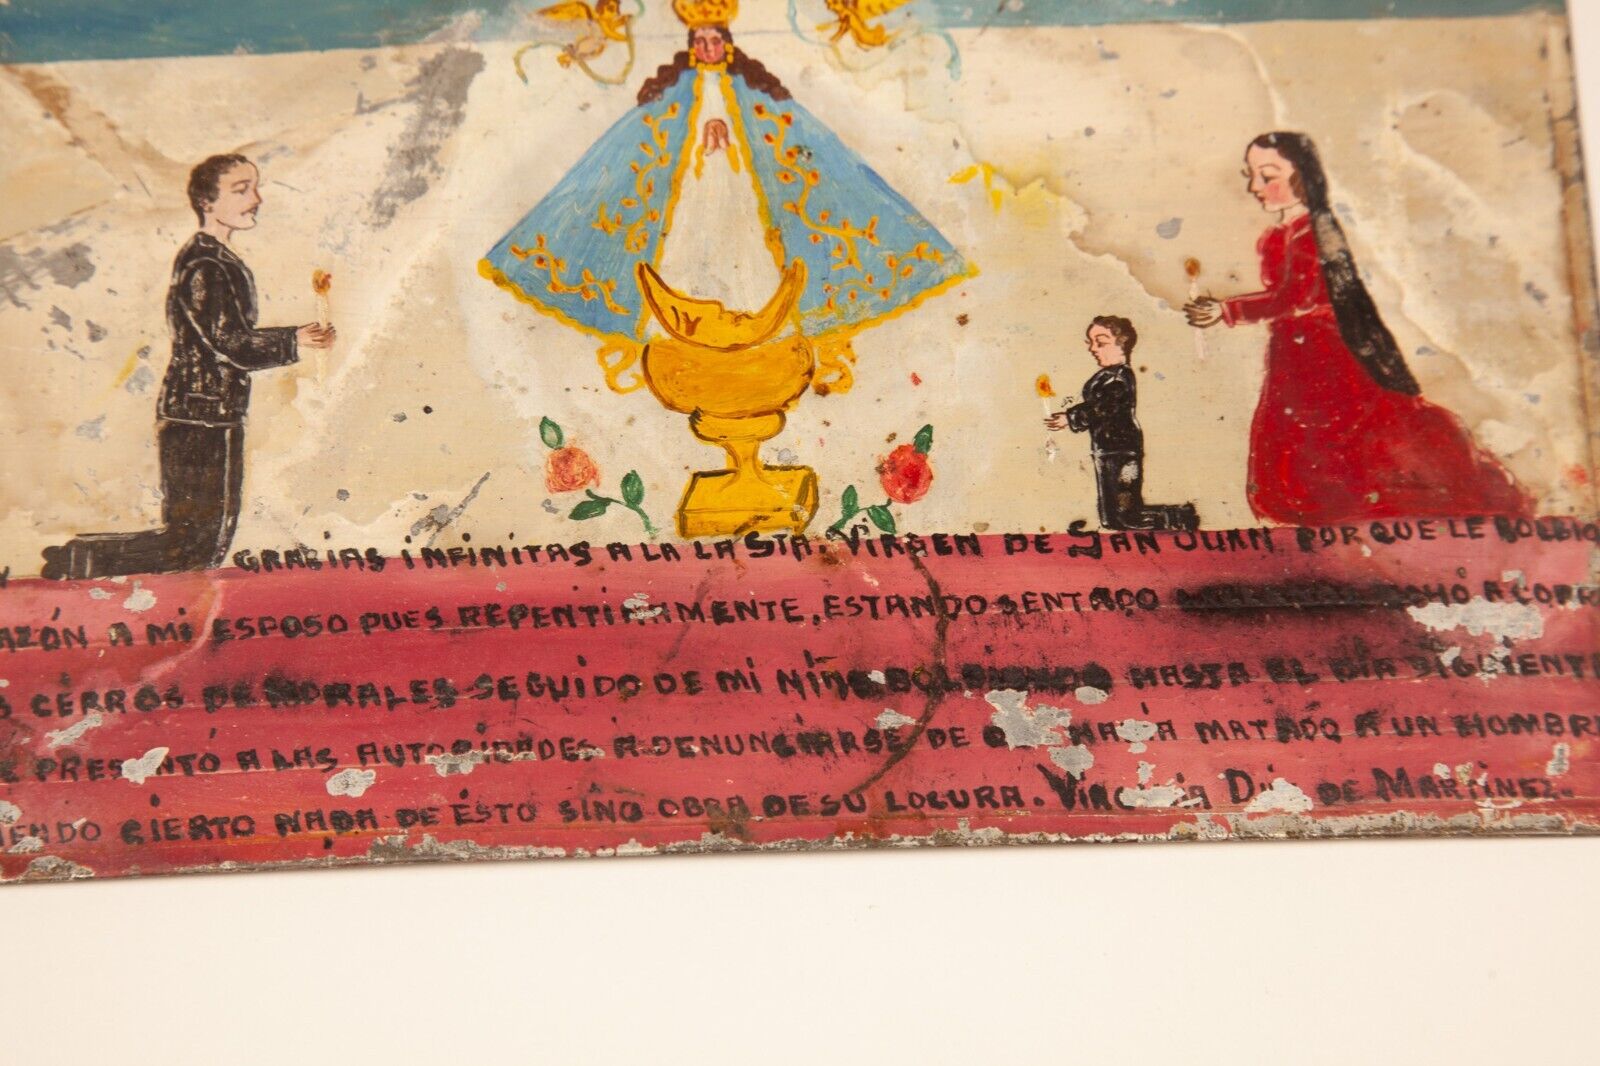 Y GRACIAS INFINITAS A LA LA STA. VIRGEN DE SAN JUAN POR QUE LE BOLBIO
AZÓN A MI ESPOSO PUES REPENTINAMENTE, ESTANDO SENTADO A CORR
S CERROS DE MORALES SEGUIDO DE MI NIÑO HASTA EL DIA SIGUIENTE
E PRESENTÓ A LAS AUTORIDADES A DENUNCIARSE DE QUE HABÍA MATADO A UN HOMBRE
IENDO CIERTO NADA DE ÉSTO SINO OBRA DE SU LOCURA. VIRGINIA DE MARTINEZ.